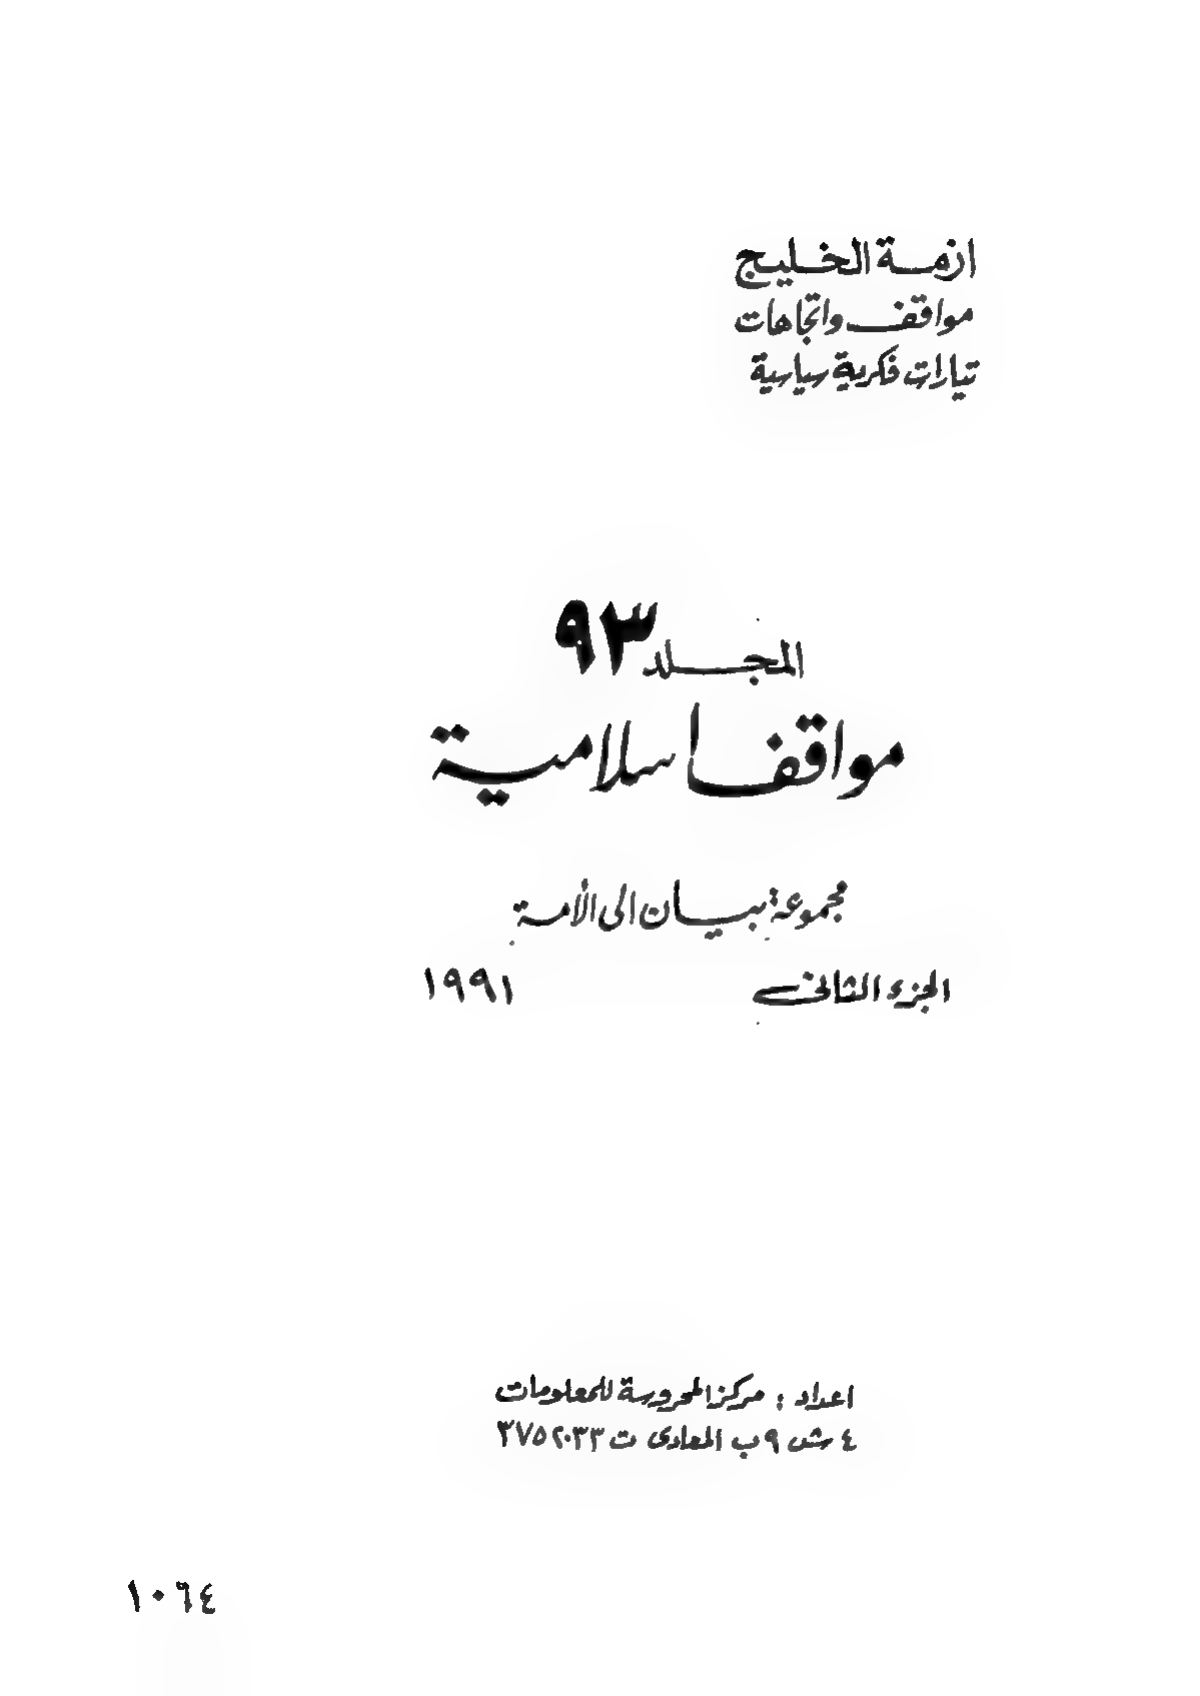 ازمة الخليج
مواقف واتجاهات
تيارات فكرية سياسية
المجلد ٩٣
مواقف اسلامية
مجموعة: بيان الى الأمة
الجزء الثانى ١٩٩١
اعداد : مركز المحروسة للمعلومات
٤ ش ٩ب المعادى ت ٣٧٥٢٠٣٣
١٠٦٤